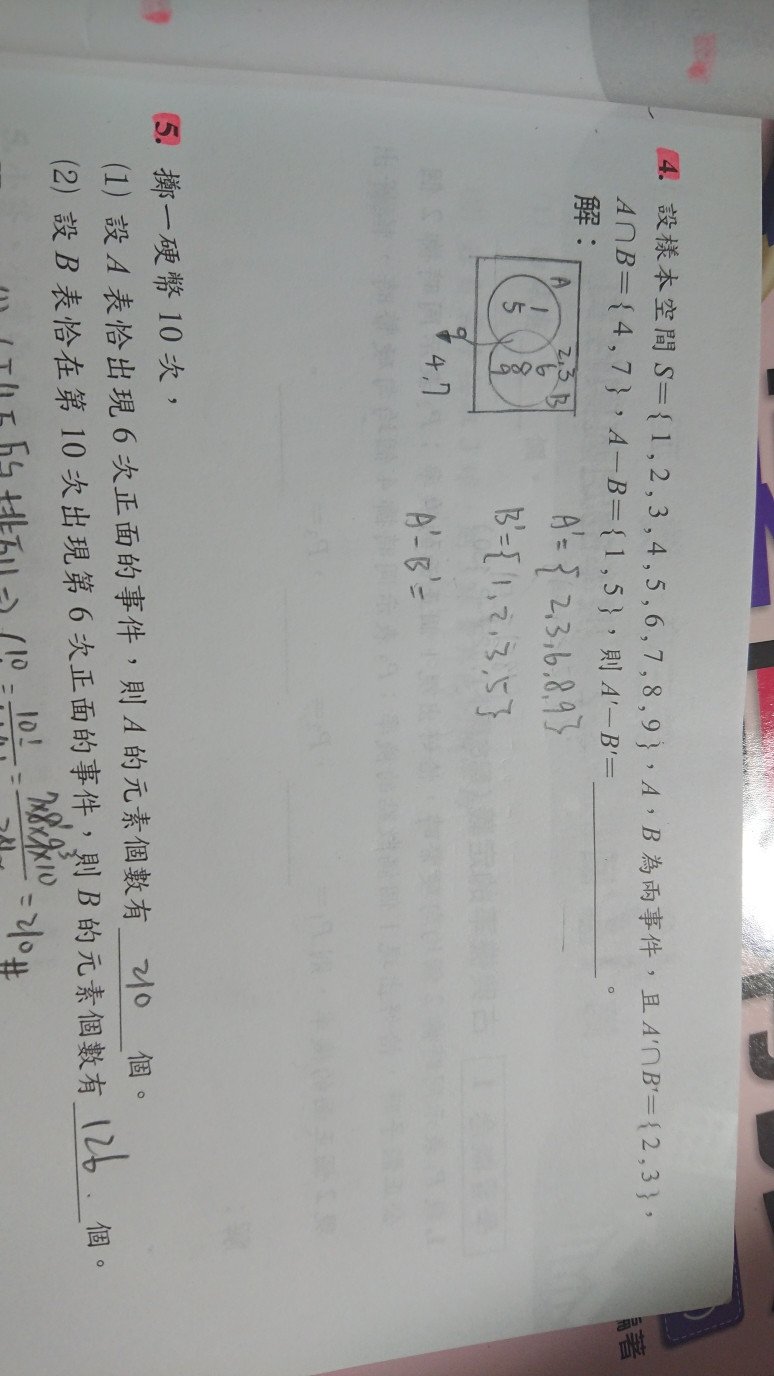 4. 設樣本空間 S={1,2,3,4,5,6,7,8,9},A、B 為兩事件,且 A'∩B'={2,3},
A∩B={4,7},A-B={1,5},則 A'-B'=__________。
解:
A
1
5
2,3
B
6
8
9
4,7
A'={2,3,6,8,9}
B'={1,2,3,5}
A'-B'=
5. 擲一硬幣 10 次,
(1) 設 A 表恰出現 6 次正面的事件,則 A 的元素個數有 210 個。
(2) 設 B 表恰在第 10 次出現第 6 次正面的事件,則 B 的元素個數有 126. 個。
=210#
編著